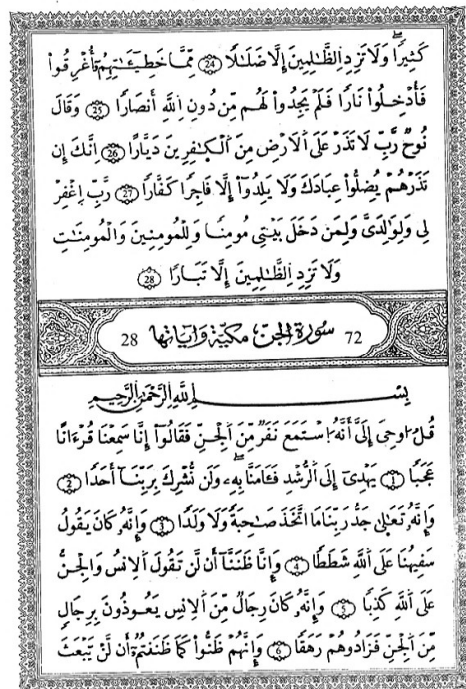 كَثِيرًا وَلَا تَزِدِ اِلظَّٰلِمِينَ إِلَّا ضَلَٰلًا 24 مِّمَّا خَطِيٓـَٰٔتِهِمُۥٓ أُغْرِقُواْ
فَأُدْخِلُواْ نَارًا فَلَمْ يَجِدُواْ لَهُم مِّن دُونِ اِللَّهِ أَنصَارًا 25 وَقَالَ
نُوحٌ رَّبِّ لَا تَذَرْ عَلَى اَلْأَرْضِ مِنَ اَلْكَٰفِرِينَ دَيَّارًا 26 اِنَّكَ إِن
تَذَرْهُمْ يُضِلُّواْ عِبَادَكَ وَلَا يَلِدُوٓاْ إِلَّا فَاجِرًا كَفَّارًا 27 رَّبِّ اِغْفِرْ
لِي وَلِوَٰلِدَيَّ وَلِمَن دَخَلَ بَيْتِي مُومِنًا وَلِلْمُومِنِينَ وَالْمُومِنَٰتِ
وَلَا تَزِدِ اِلظَّٰلِمِينَ إِلَّا تَبَارًا 28
72 سورة الجن مكية وءاياتها 28
بِسْمِ اِللَّهِ اِلرَّحْمَٰنِ اِلرَّحِيمِ
قُلُ اوحِيَ إِلَيَّ أَنَّهُ اُ۪سْتَمَعَ نَفَرٌ مِّنَ اَلْجِنِّ فَقَالُوٓاْ إِنَّا سَمِعْنَا قُرْءَانًا
عَجَبًا 1 يَهْدِيٓ إِلَى اَلرُّشْدِ فَـَٔامَنَّا بِهِۦ وَلَن نُّشْرِكَ بِرَبِّنَآ أَحَدًا 2
وَإِنَّهُۥ تَعَٰلَىٰ جَدُّ رَبِّنَا مَا اَتَّخَذَ صَٰحِبَةً وَلَا وَلَدًا 3 وَإِنَّهُۥ كَانَ يَقُولُ
سَفِيهُنَا عَلَى اَللَّهِ شَطَطًا 4 وَإِنَّا ظَنَنَّآ أَن لَّن تَقُولَ اَلْإِنسُ وَالْجِنُّ
عَلَى اَللَّهِ كَذِبًا 5 وَإِنَّهُۥ كَانَ رِجَالٌ مِّنَ اَلْإِنسِ يَعُوذُونَ بِرِجَالٍ
مِّنَ اَلْجِنِّ فَزَادُوهُمْ رَهَقًا 6 وَإِنَّهُمْ ظَنُّواْ كَمَا ظَنَنتُمُۥٓ أَن لَّنْ يَّبْعَثَ